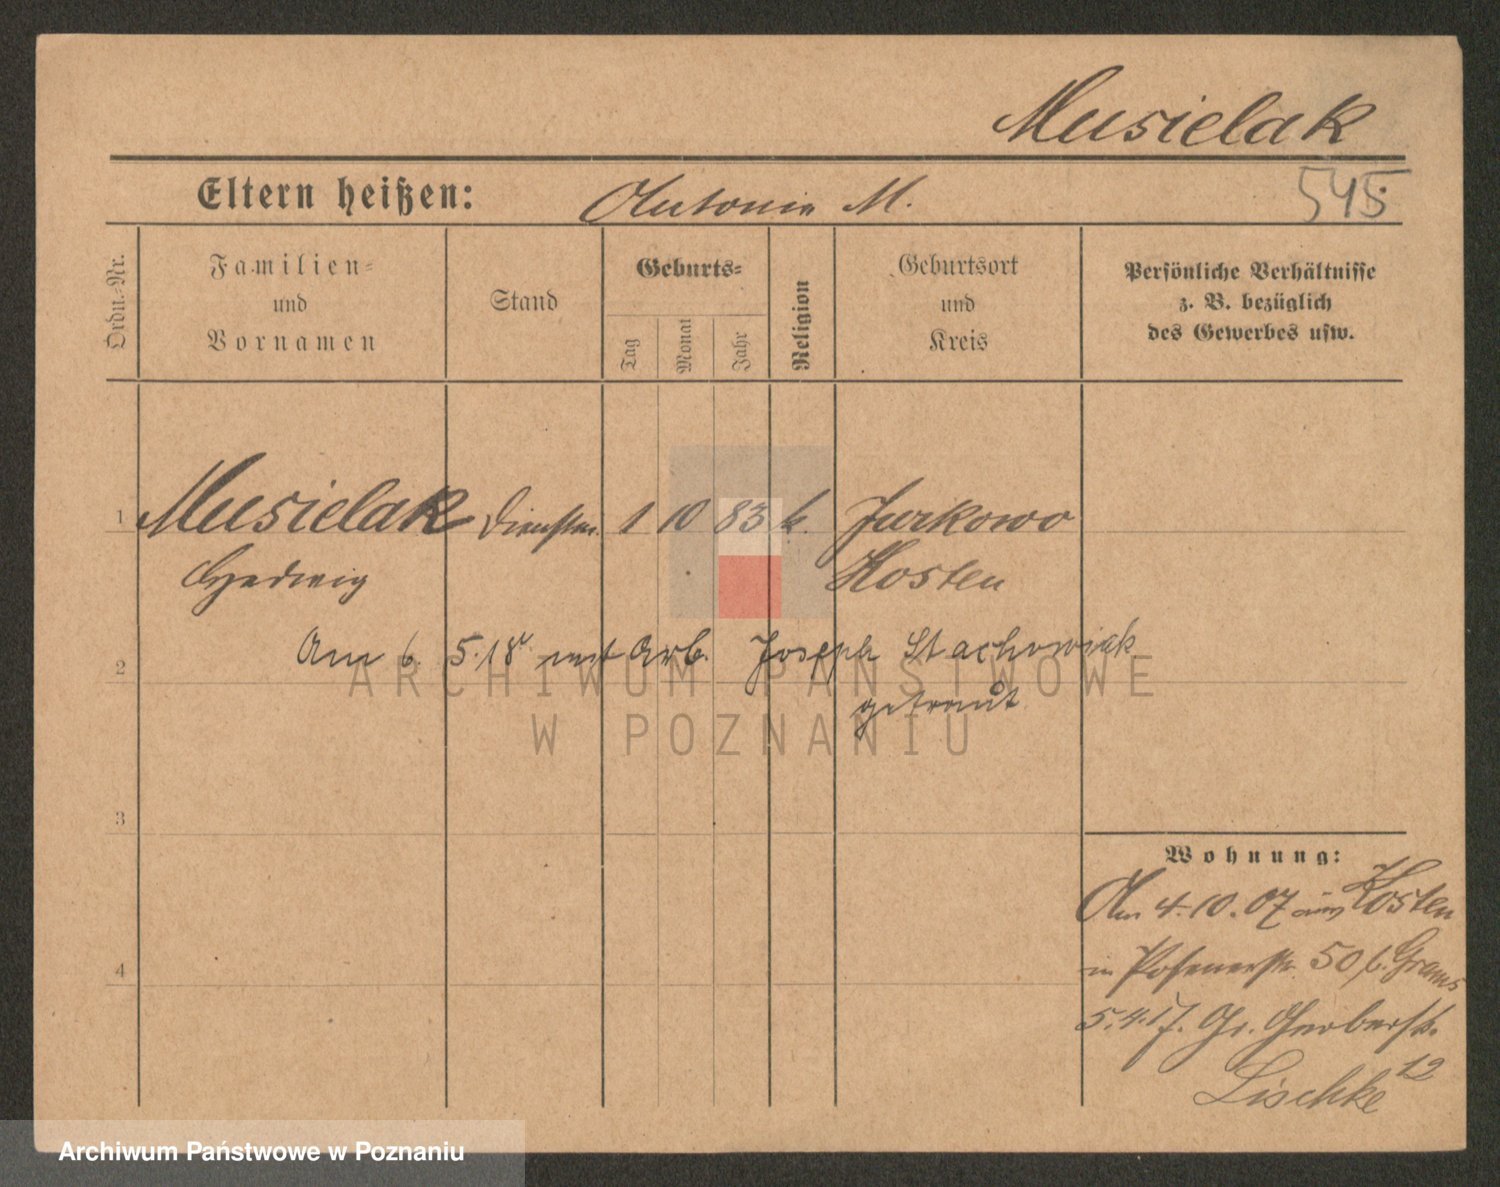 Musielak
Eltern heißen: Antonie M. 545
Ordn.-Nr.
Familien-
und
Vornamen
Stand
Geburts-
Tag
Monat
Jahr
Religion
Geburtsort
und
Kreis
Persönliche Verhältnisse
z. B. bezüglich
des Gewerbes usw.
1 Musielak Dienstm. 1 10 83 k. Jurkowo
Hedwig Kosten
Am 6. 5. 18 mit Arb. Joseph Stachowiak
2
getraut
3
Wohnung:
Am 4.10.07 aus Kosten
in Posenerstr. 50 b. Grams
4
5.4.17. Gr. Gerberstr.
12
Lischke
ARCHIWUM PAŃSTWOWE
W POZNANIU
Archiwum Państwowe w Poznaniu